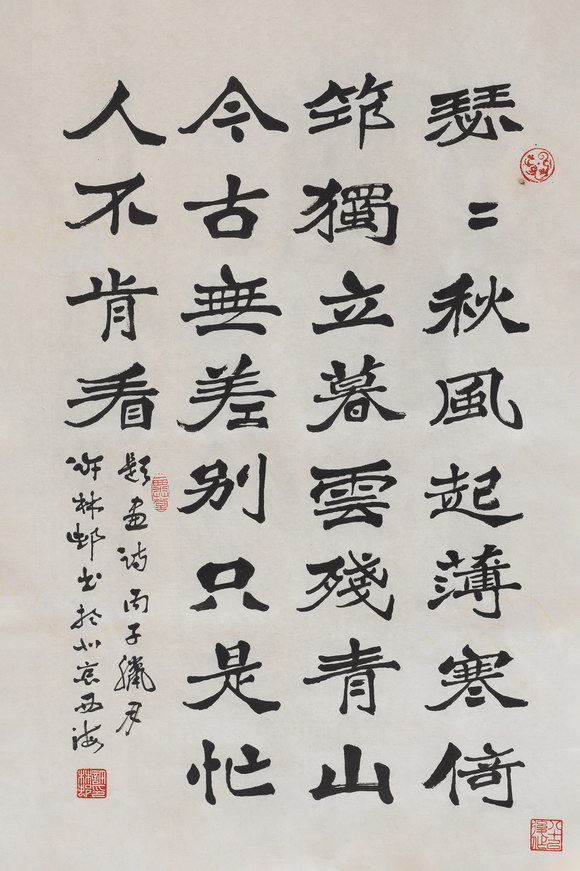 瑟〻秋風起薄寒倚
筇獨立暮雲殘青山
今古無差别只是忙
人不肯看
題画詩丙子臘月
許林邨书於北京西海